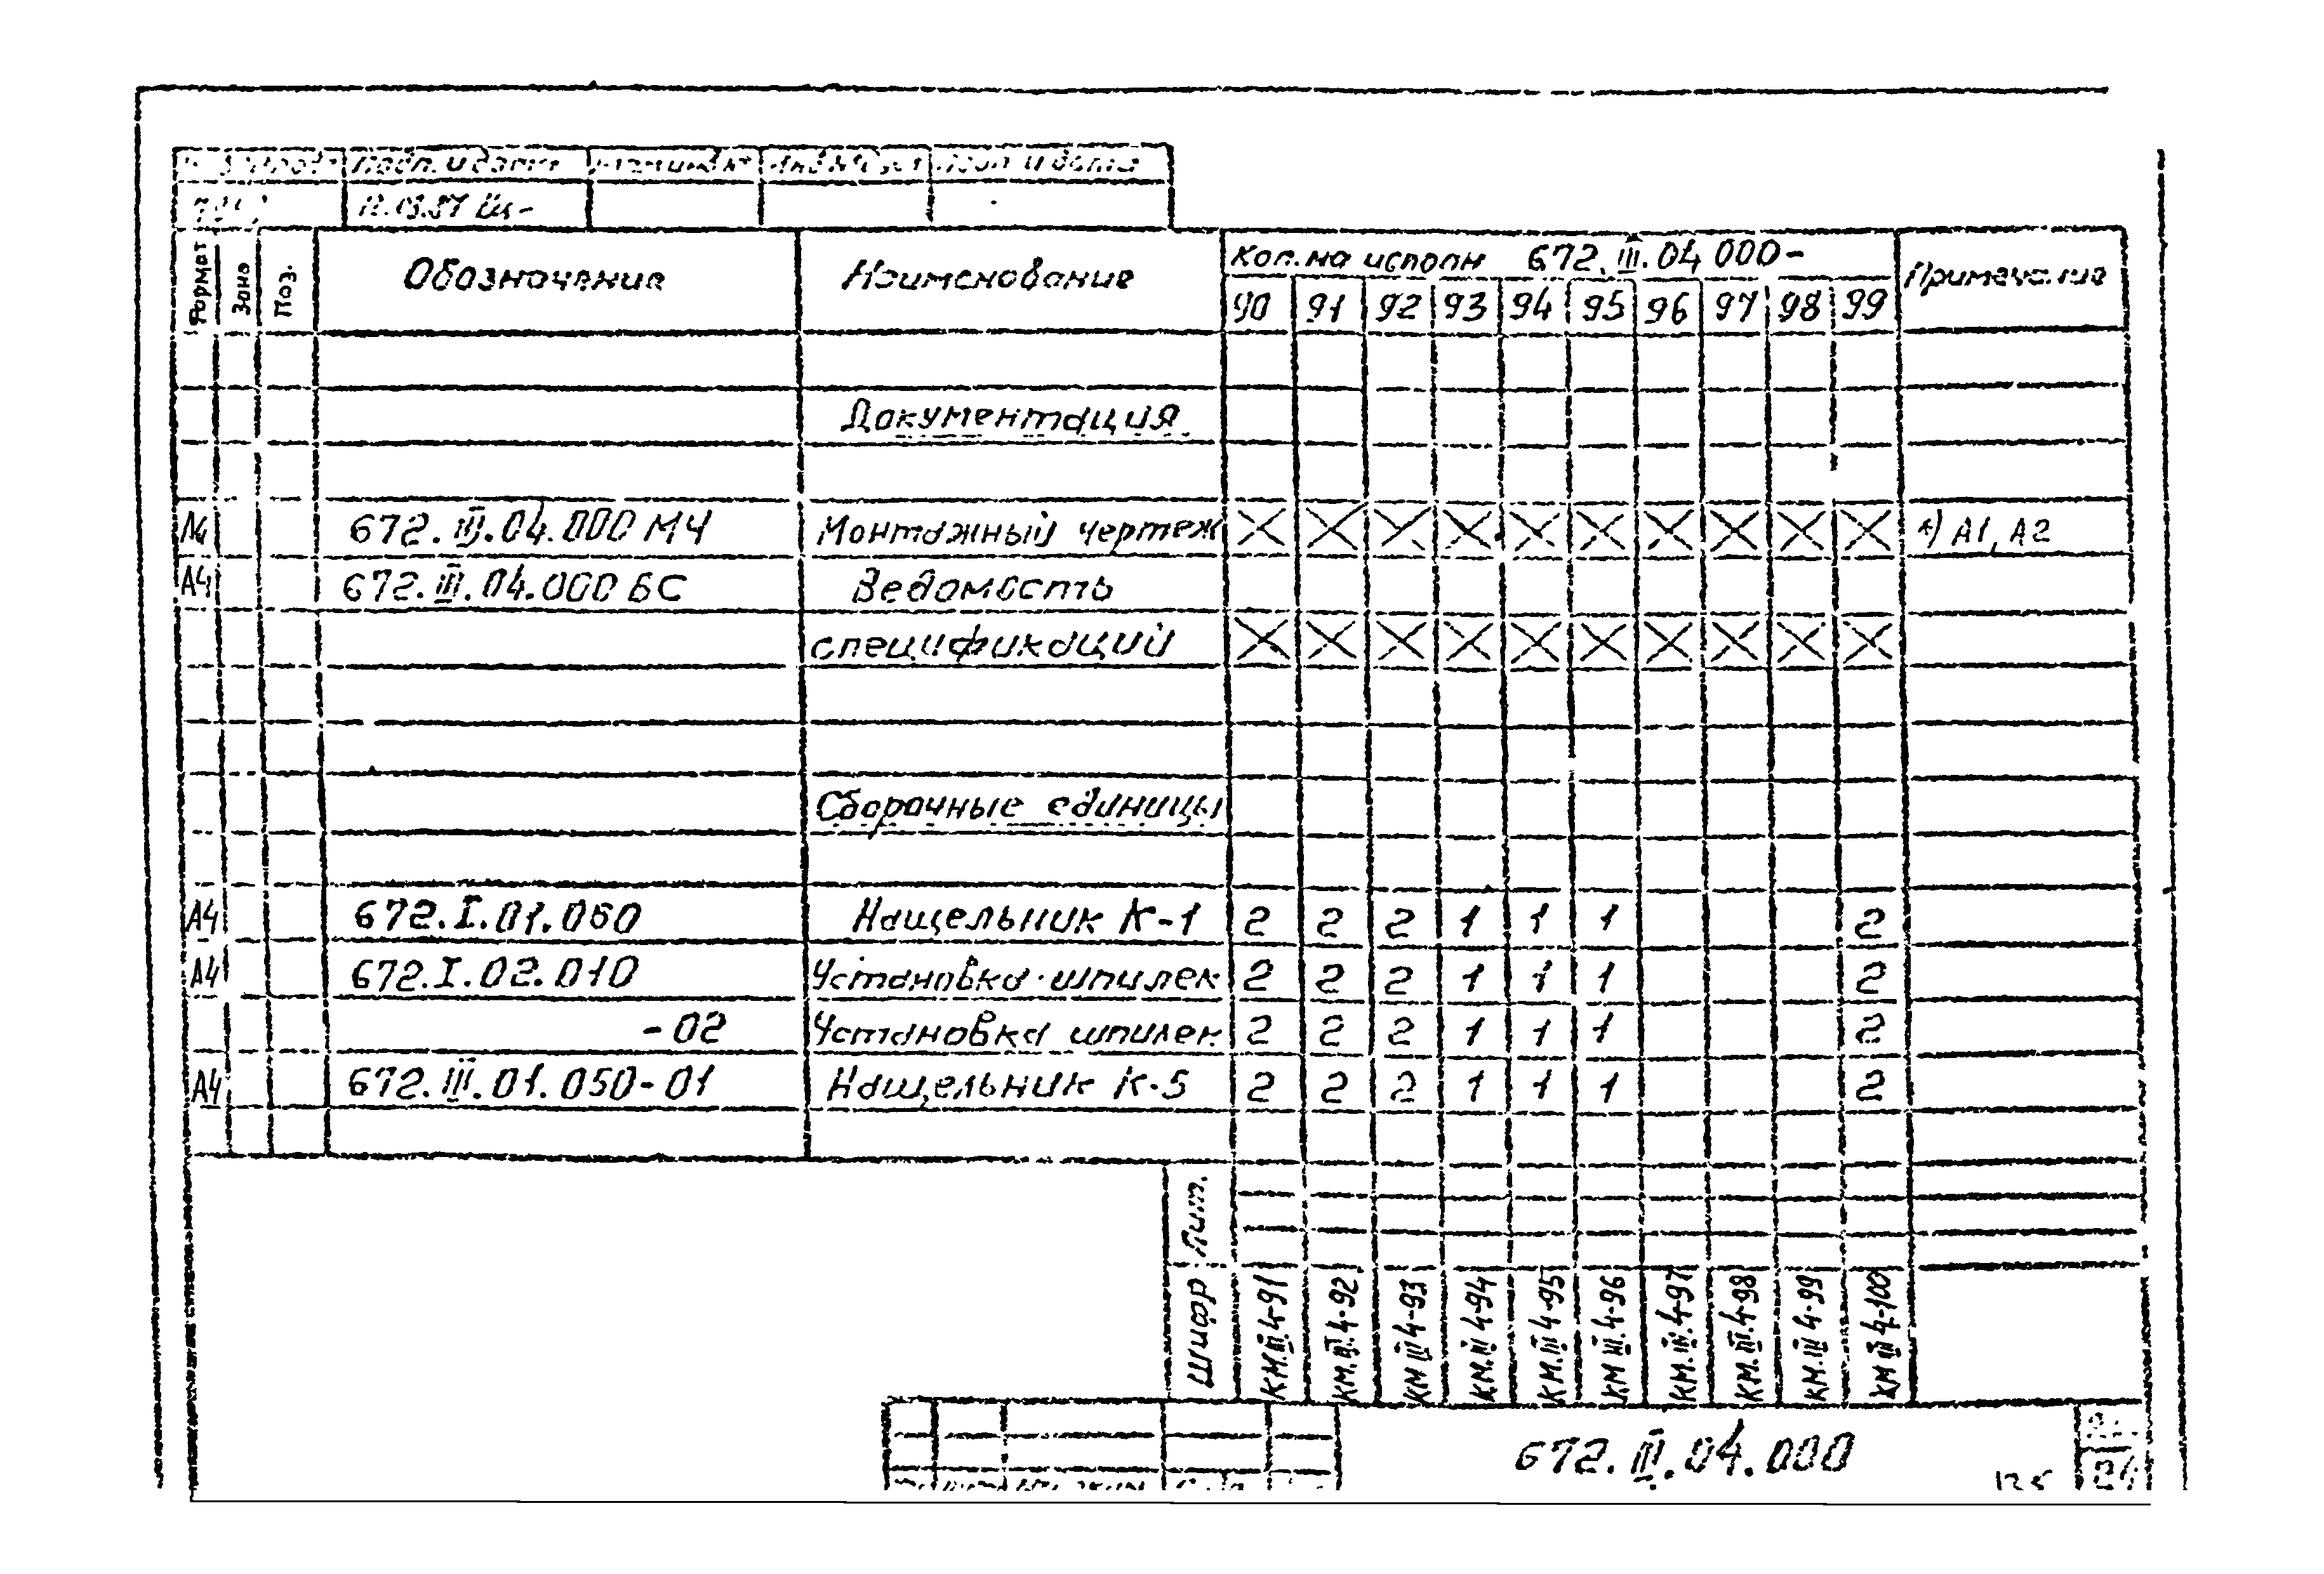 Подп. и дата Подп. и дата
12.03.87
Формат Зона Поз. Обозначение Наименование Кол. на исполн 672.III.04 000- Примечание
90 91 92 93 94 95 96 97 98 99
Документация
672.III.04.000 МЧ Монтажный чертеж X X X X X X X X X X *) А1, А2
А4 672.III.04.000 ВС Ведомость
спецификаций X X X X X X X X X X
Сборочные единицы
А4 672.I.01.060 Нащельник К-1 2 2 2 1 1 1 2
А4 672.I.02.010 Установка шпилек 2 2 2 1 1 1 2
-02 Установка шпилек 2 2 2 1 1 1 2
А4 672.III.01.050-01 Нащельник К-5 2 2 2 1 1 1 2
Лит.
Шифр КМ.III.4-91 КМ.III.4-92 КМ III 4-93 КМ.III 4-94 КМ.III 4-95 КМ III.4-96 КМ.III.4-97 КМ.III.4-98 КМ.III 4-99 КМ III 4-100
672.III.04.000